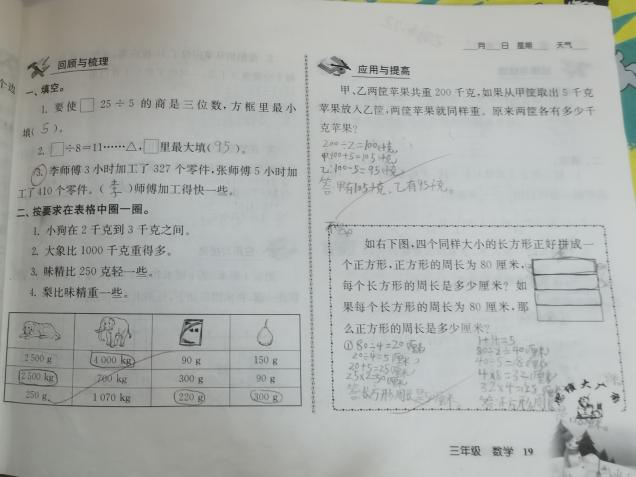 月 日 星期 天气
回顾与梳理
一、填空。
1. 要使□25÷5的商是三位数,方框里最小
填( 5 )。
2. □÷8=11……△,□里最大填(95)。
3. 李师傅3小时加工了327个零件,张师傅5小时加
工了410个零件。(李)师傅加工得快一些。
二、按要求在表格中圈一圈。
1. 小狗在2千克到3千克之间。
2. 大象比1000千克重得多。
3. 味精比250克轻一些。
4. 梨比味精重一些。
2500 g 4000 kg 90 g 150 g
2500 kg 700 kg 300 g 90 g
250 g 1070 kg 220 g 300 g
应用与提高
甲、乙两筐苹果共重200千克,如果从甲筐取出5千克
苹果放入乙筐,两筐苹果就同样重。原来两筐各有多少千
克苹果?
200÷2=100千克
甲:100+5=105千克
乙:100-5=95千克
答:甲有105千克,乙有95千克。
如右下图,四个同样大小的长方形正好拼成一
个正方形,正方形的周长为80厘米,
每个长方形的周长是多少厘米?如
果每个长方形的周长为80厘米,那
么正方形的周长是多少厘米?
①80÷4=20厘米
20÷4=5厘米
20+5=25厘米
25×2=50厘米
1+4=5
80÷2=40厘米
40÷5=8厘米
4×8=32厘米
三年级 数学 19